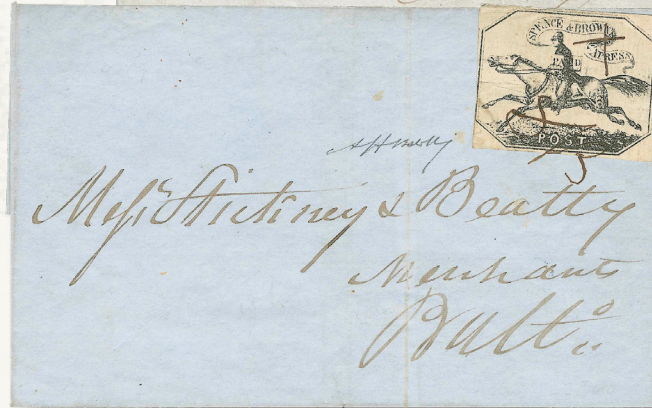 SPENCE & BROWN
EXPRESS
PAID
POST
Mess.rs Stickney & Beatty
Merchants
Balto.